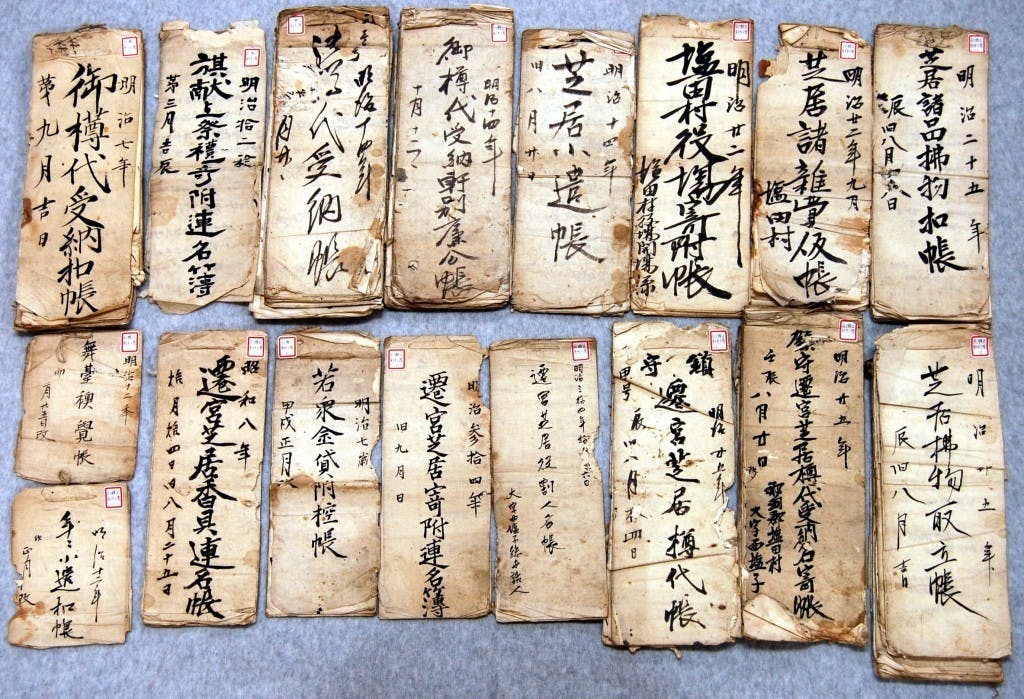 明治二十五年
芝居諸品拂物扣帳
辰旧八月
明治廿二年九月
芝居諸雑費仮帳
塩田村
明治廿二年
塩田村役場寄附帳
塩田村役場開場示
明治十四年
芝居小遣帳
旧八月廿日
明治四年
御樽代受納軒別
十月十二
明治十四年
代受納帳
明治七年
御樽代受納扣帳
第九月吉日
明治拾二
旗献上祭禮寄附連名簿
第三月吉辰
明治廿五年
芝居拂物取立帳
辰旧八月吉
明治廿五年
鎮守遷宮芝居樽代受納名寄帳
壬辰八月廿日
塩田村
大字西塩子
鎮守
明治廿五年
遷宮芝居樽代帳
辰旧八月
遷宮芝居役割人名帳
明治参拾四年
遷宮芝居寄附連名簿
旧九月日
明治七歳
若衆金貸附控帳
甲戌正月
昭和八年
遷宮芝居香具連名帳
旧八月二十五日
明治十二年
舞臺襖覚帳
明治十二年
小遣扣帳
正月